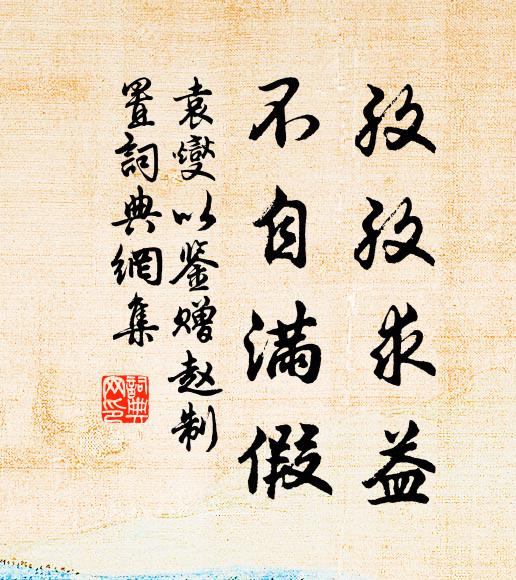 孜孜求益
不自满假
袁燮以鉴赠赵制
置詞典網集
詞典
网印